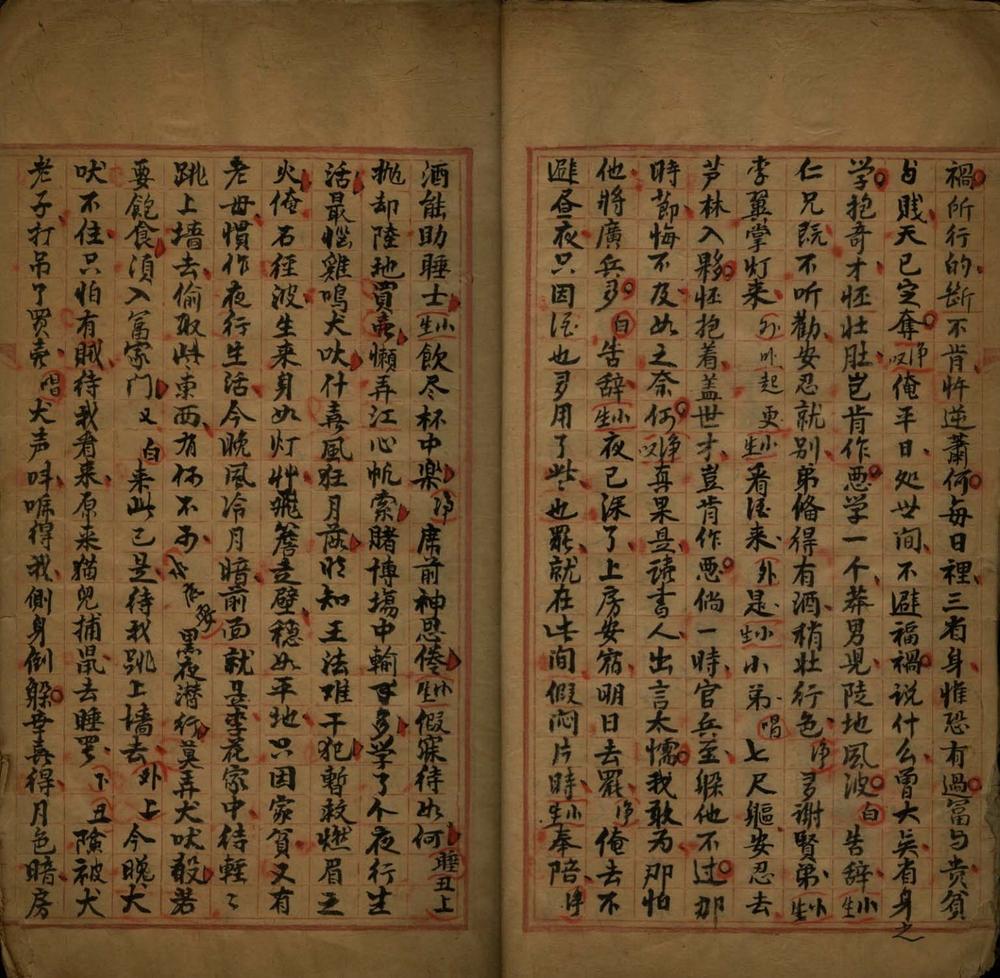 禍所行的斷不肯忤逆蕭何每日裡三省身惟恐有過冨与贵貧
与贱天已定奪净又俺平日处世间不避福禍说什么曾大吴有身之
学抱奇才怌壮肚岂肯作恶学一个莽男児陆地風波白告辞生小
仁兄既不听勸安忍就别弟俻得有酒稍壮行色净多谢賢弟生小
李翼掌灯来外叫起更生小看酒来外是生小小弟唱七尺軀安忍去
芦林入夥怌抱着盖世才豈肯作恶倘一時官兵至躲他不过那
時莭悔不及如之奈何净又真果是读書人出言太懦我敢为那怕
他將廣兵多白告辞生小夜已深了上房安宿明日去罷净俺去不
避昼夜只因酒也多用了些也罢就在此间假闷片時生小奉陪净
酒能助睡士生小飲尽杯中楽净席前神思倦生小假寐待如何睡丑上
抛却陸地買壶懒弄江心帆索賭博場中輸多学了个夜行生
活最惱雞鸣犬吠什喜風狂月落明知王法难干犯暫救燃眉之
火俺石徑波生来身如灯艸飛簷走壁穏如平地只因家貧又有
老母慣作夜行生活今晚风冷月暗前面就是李花家中待輕々
跳上墙去偷取些東西有何不可黑夜潜行莫弄犬吠殺若
要飽食湏入冨家門又白来此已是待我跳上墻去外上今晚犬
吠不住只怕有贼待我看来原来猫兒捕鼠去睡罢下丑險被犬
老子打吊了買壶唱犬声呌唬得我側身倒躲幸喜得月色暗房